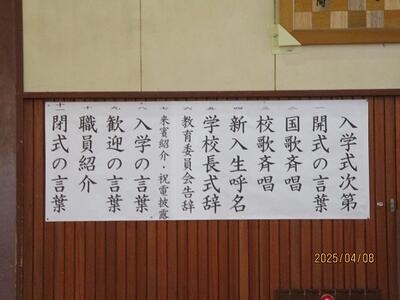 入学式次第
一 開式の言葉
二 国歌斉唱
三 校歌斉唱
四 新入生呼名
五 学校長式辞
六 教育委員会告辞
七 来賓紹介・祝電披露
八 入学の言葉
九 歓迎の言葉
十 職員紹介
十一 閉式の言葉
2025/04/08